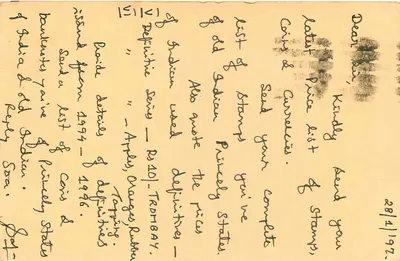 28/1/'97.
Dear Sir, Kindly send your
latest Price list of Stamps,
Coins & Currencies.
Send your complete
list of stamps you've
of old Indian Princely States.
Also quote the prices
of Indian used definitives –
V Definitive Series – Rs 10/- TROMBAY.
VI " " – Apples, Oranges, Rubber
Tapping.
details of definitives
issued from 1994 - 1996.
Send a list of coins &
banknotes you've of Princely States
of India & old Indian.
Reply Soon.